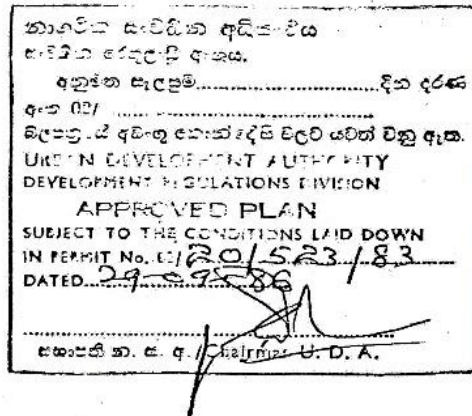 නාගරික සංවර්ධන අධිකාරිය
සංවර්ධන රෙගුලාසි අංශය.
අනුමත සැලසුම...............දින දරණ
අංක 02/ ...............
බලපත්‍රයේ අඩංගු කොන්දේසි වලට යටත් විනු ඇත.
URBAN DEVELOPMENT AUTHORITY
DEVELOPMENT REGULATIONS DIVISION
APPROVED PLAN
SUBJECT TO THE CONDITIONS LAID DOWN
IN PERMIT No. 02/20/523/83
DATED 29-09-86
සභාපති න. සं. අ. / Chairman U. D. A.